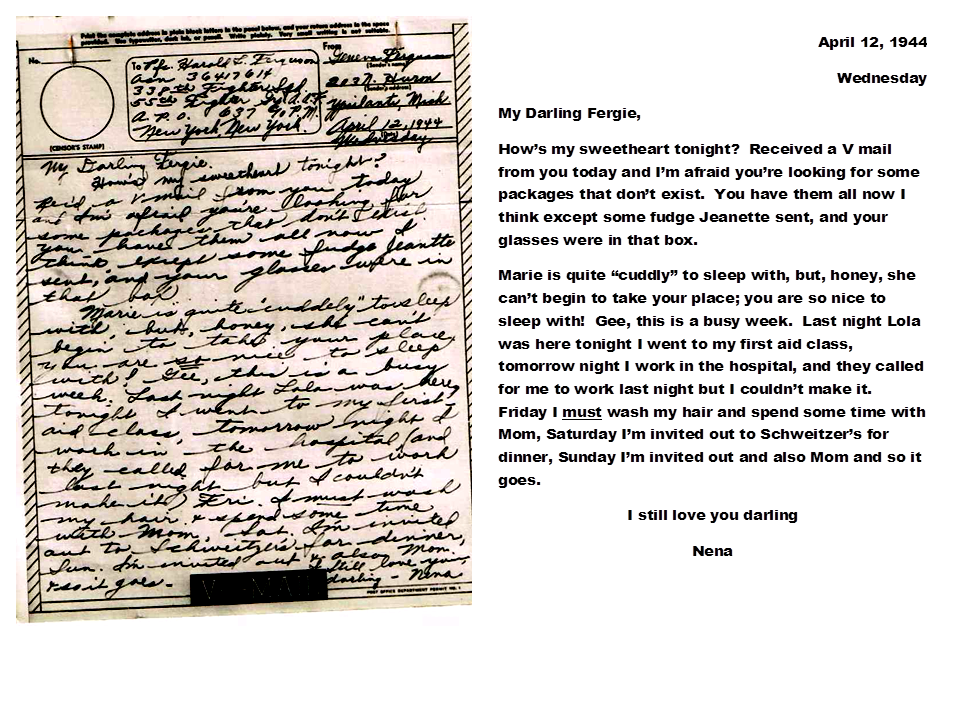 Print the complete address in plain block letters in the panel below, and your return address in the space
provided. Use typewriter, dark ink, or pencil. Write plainly. Very small writing is not suitable.
No.
(CENSOR'S STAMP)
To Pfc. Harold L. Ferguson
Asn 36417614
338th Fighter Sqd.
55th Fighter Gp. A.A.F.
A.P.O. 637 % P.M.
New York, New York.
From
Geneva Ferguson
(Sender's name)
203 N. Huron
(Sender's address)
Ypsilanti, Mich
April 12, 1944
Wednesday
My Darling Fergie.
How's my sweetheart tonight?
Rec'd a V mail from you today
and I'm afraid you're looking for
some packages that don't exist.
You have them all now I
think except some fudge Jeanette
sent, and your glasses were in
that box.
Marie is quite "cuddely" to sleep
with, but, honey, she can't
begin to take your place,
you are so nice to sleep
with! Gee, this is a busy
week. Last night Lola was here,
tonight I went to my first-
aid class, tomorrow night I
work in the hospital, (and
they called for me to work
last night but I couldn't
make it) Fri. I must wash
my hair & spend some time
with Mom, Sat. I'm invited
out to Schweitzer's for dinner,
Sun. I'm invited out & also Mom.
& so it goes- I still love you,
darling - Nena
V-MAIL
POST OFFICE DEPARTMENT PERMIT NO. 1
April 12, 1944
Wednesday
My Darling Fergie,
How's my sweetheart tonight?  Received a V mail
from you today and I'm afraid you're looking for some
packages that don't exist.  You have them all now I
think except some fudge Jeanette sent, and your
glasses were in that box.
Marie is quite “cuddly” to sleep with, but, honey, she
can't begin to take your place; you are so nice to
sleep with!  Gee, this is a busy week.  Last night Lola
was here tonight I went to my first aid class,
tomorrow night I work in the hospital, and they called
for me to work last night but I couldn't make it.
Friday I must wash my hair and spend some time with
Mom, Saturday I'm invited out to Schweitzer's for
dinner, Sunday I'm invited out and also Mom and so it
goes.
I still love you darling
Nena